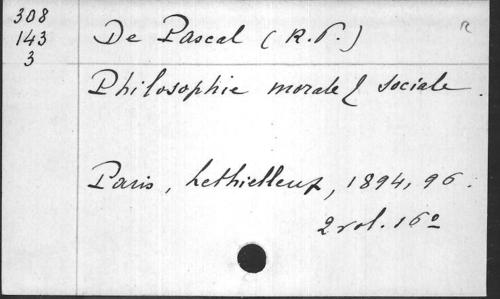 308
143
3
De Pascal (R.P.) R
Philosophie morale & sociale.
Paris, Lethielleux, 1894, 96.
2 vol. 16º